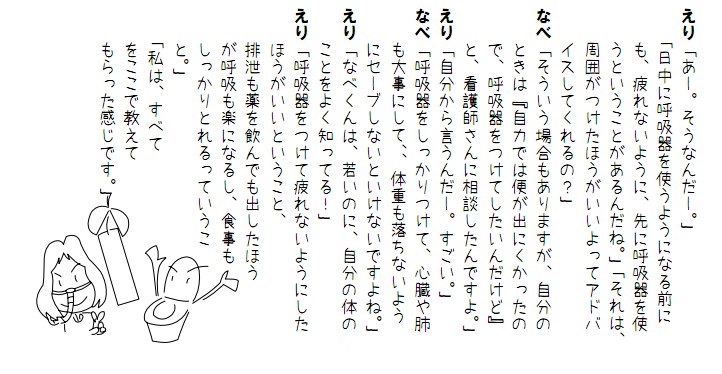 えり「あー。そうなんだー。」
「日中に呼吸器を使うようになる前に
も、疲れないように、先に呼吸器を使
うということがあるんだね。」「それは、
周囲がつけたほうがいいよってアドバ
イスしてくれるの？」
なべ「そういう場合もありますが、自分の
ときは『自力では便が出にくかったの
で、呼吸器をつけてしたいんだけど』
と、看護師さんに相談したんですよ。」
えり「自分から言うんだー。すごい。」
なべ「呼吸器をしっかりつけて、心臓や肺
も大事にして、、体重も落ちないよう
にセーブしないといけないですよね。」
えり「なべくんは、若いのに、自分の体の
ことをよく知ってる！」
えり「呼吸器をつけて疲れないようにした
ほうがいいということ、
排泄も薬を飲んでも出したほう
が呼吸も楽になるし、食事も
しっかりとれるっていうこ
と。」
「私は、すべて
をここで教えて
もらった感じです。」